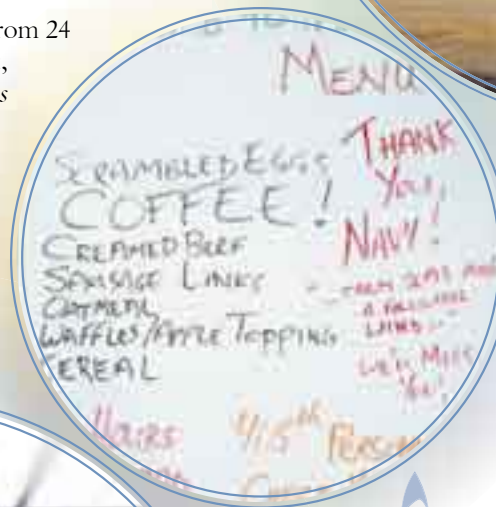 rom 24
,
s
MENU
SCRAMBLED EGGS
COFFEE!
CREAMED BEEF
SAUSAGE LINKS
OATMEAL
WAFFLES/APPLE TOPPING
CEREAL
THANK
YOU,
NAVY!
WE'LL MISS
YOU!
HOURS
4/15th